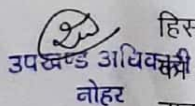 हिस
उपखण्ड अधिकारी
नोहर